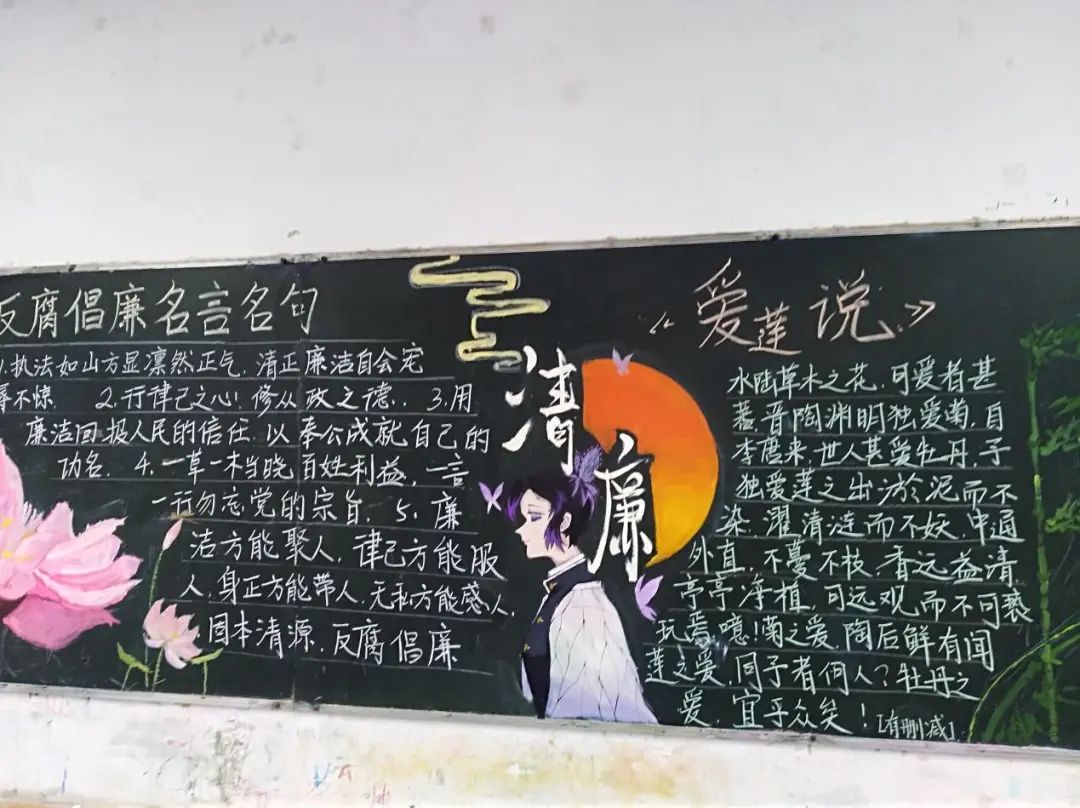 反腐倡廉名言名句
1.执法如山方显凛然正气,清正廉洁自会宠
辱不惊 2.行律己之心,修从政之德. 3.用
廉洁回报人民的信任,以奉公成就自己的
功名. 4.一草一木当晓百姓利益,一言
一行勿忘党的宗旨. 5.廉
洁方能聚人,律己方能服
人,身正方能带人,无私方能感人,
固本清源,反腐倡廉
清
廉
《爱莲说》
水陆草木之花,可爱者甚
蕃.晋陶渊明独爱菊,自
李唐来,世人甚爱牡丹,予
独爱莲之出淤泥而不
染,濯清涟而不妖,中通
外直,不蔓不枝,香远益清
亭亭净植,可远观而不可亵
玩焉,噫!菊之爱,陶后鲜有闻
莲之爱,同予者何人?牡丹之
爱,宜乎众矣![有删减]